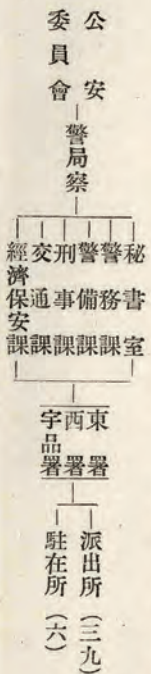 公安
委員會
警局察
秘書室
警務課
警備課
刑事課
交通課
經濟保安課
東署
西署
宇品署
派出所（三九）
駐在所（六）